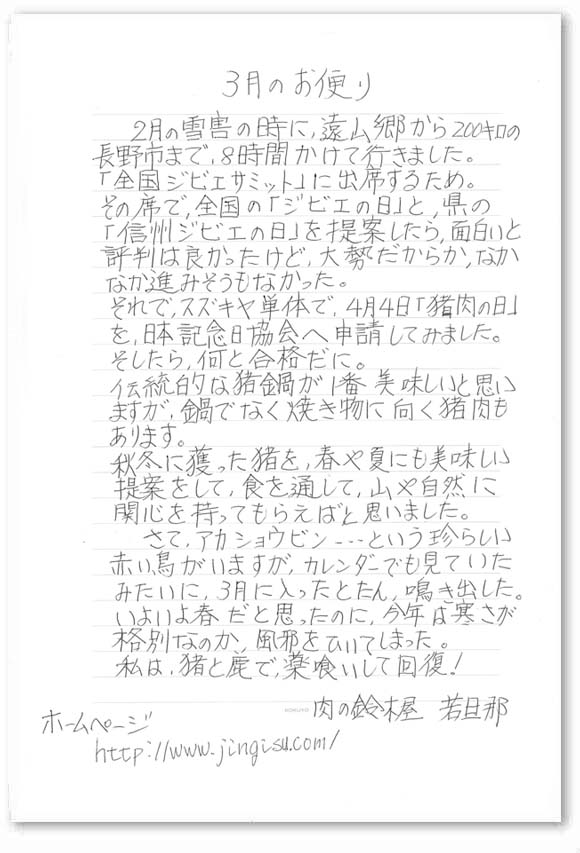 3月のお便り
2月の雪害の時に,遠山郷から200キロの
長野市まで,8時間かけて行きました。
「全国ジビエサミット」に出席するため。
その席で,全国の「ジビエの日」と,県の
「信州ジビエの日」を提案したら,面白いと
評判は良かったけど,大勢だからか,なか
なか進みそうもなかった。
それで,スズキヤ単体で,4月4日「猪肉の日」
を,日本記念日協会へ申請してみました。
そしたら,何と合格だに。
伝統的な猪鍋が1番美味しいと思い
ますが,鍋でなく焼き物に向く猪肉も
あります。
秋冬に獲った猪を,春や夏にも美味しい
提案をして,食を通して,山や自然に
関心を持ってもらえばと思いました。
さて,アカショウビン---という珍らしい
赤い鳥がいますが,カレンダーでも見ていた
みたいに,3月に入ったとたん,鳴き出した。
いよいよ春だと思ったのに,今年は寒さが
格別なのか,風邪をひいてしまった。
私は,猪と鹿で,薬喰いして回復!
KOKUYO
肉の鈴木屋 若旦那
ホームページ
http://www.jingisu.com/